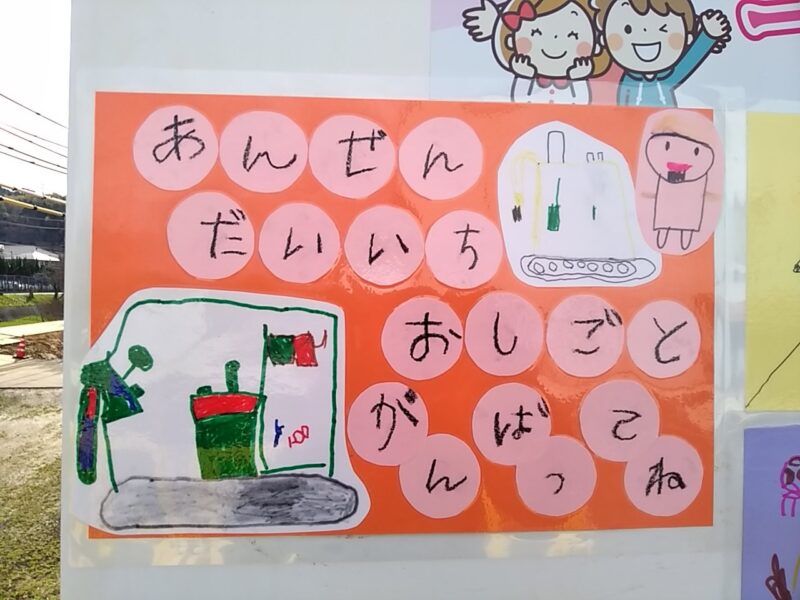 あんぜん
だいいち
おしごと
がんばってね